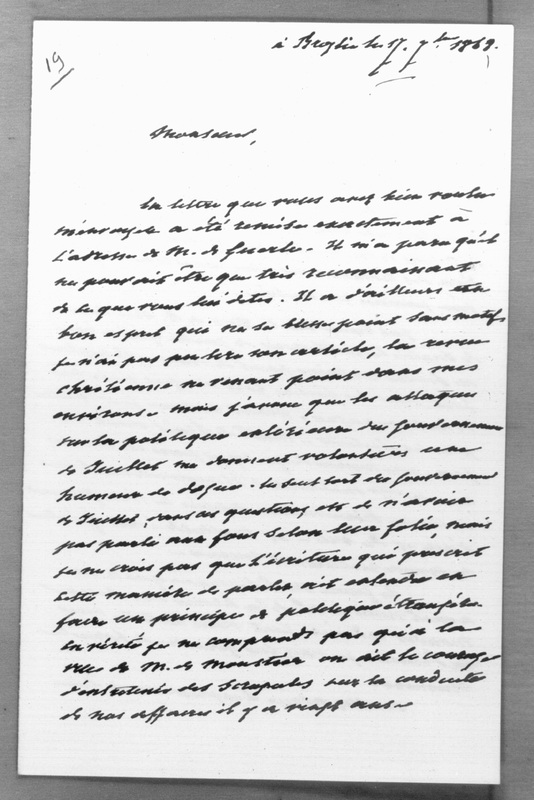 19
à Broglie le 17. 7bre 1868.
Monsieur,
La lettre que vous avez bien voulu
m'envoyer a été remise exactement à
l'adresse de M. de Guerle. Il m'a paru qu'il
ne pouvait être que très reconnaissant
de ce que vous lui dites. Il a d'ailleurs un
bon esprit qui ne se blesse point sans motifs
je n'ai pas pu lire son article, la revue
chrétienne ne venant point dans mes
environs. mais j'avoue que les attaques
sur la politique extérieure du Gouvernement
de Juillet me donnent volontiers une
humeur de dogue. le seul tort du Gouvernement
de Juillet, dans ces questions est de n'avoir
pas parlé aux fous selon leur folie mais
je ne crois pas que l'écriture qui prescrit
cette manière de parler, ait entendu en
faire un principe de politique étrangère.
En vérité je ne comprends pas qu'à la
vue de M. de Moustier on ait le courage
d'entretenir des scrupules sur la conduite
de nos affaires il y a vingt ans.